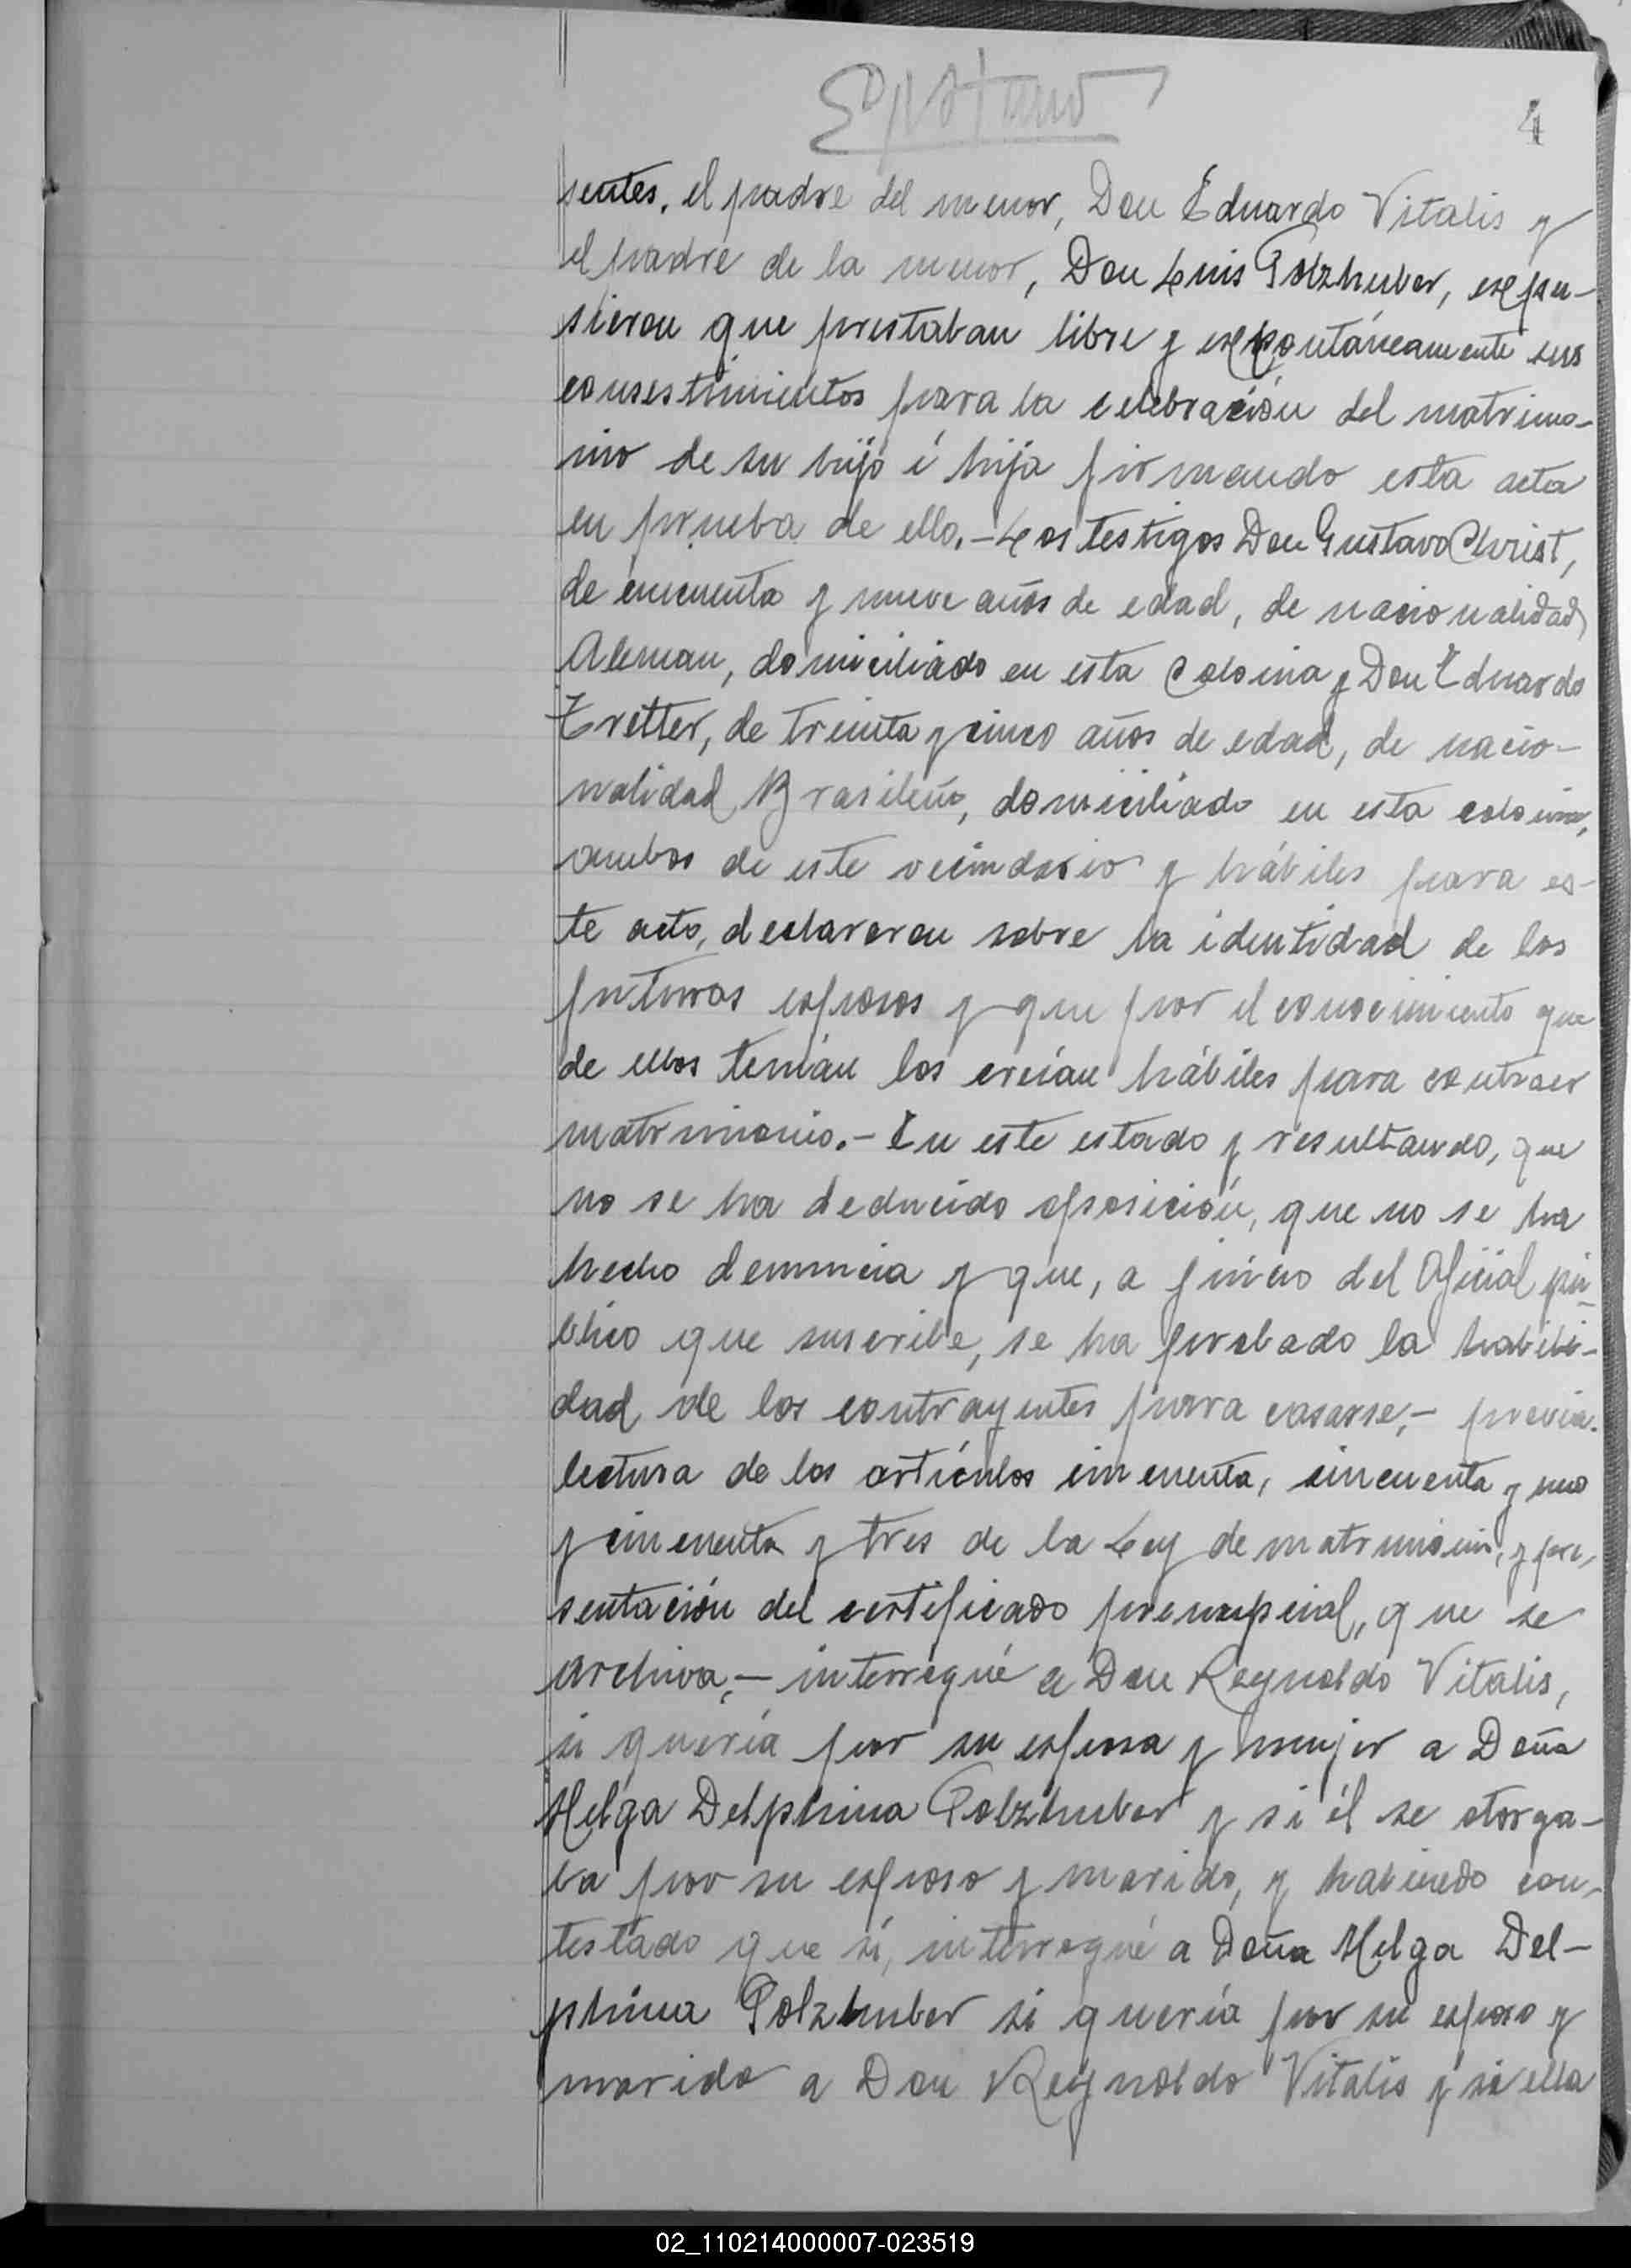 4
sentes, el padre del menor, Don Eduardo Vitalis y
el padre de la menor, Don Luis Polzhuber, expu-
sieron que prestaban libre y expontáneamente sus
consestimientos para la celebración del matrimo-
nio de su hijo é hija firmando esta acta
en prueba de ello.- Los testigos Don Gustavo Christ,
de cincuenta y nueve años de edad, de nacionalidad
Aleman, domiciliado en esta Colonia y Don Eduardo
Tretter, de treinta y cinco años de edad, de nacio-
nalidad Brasileño, domiciliado en esta colonia,
ambos de este vecindario y hábiles para es-
te acto, declararon sobre la identidad de los
futuros esposos y que por el conocimiento que
de ellos tenían los creían hábiles para contraer
matrimonio.- En este estado y resultando, que
no se ha deducido oposición, que no se ha
hecho denuncia y que, a juicio del Oficial pú-
blico que suscribe, se ha probado la habili-
dad de los contrayentes para casarse,- previa
lectura de los artículos cincuenta, cincuenta y uno
y cincuenta y tres de la Ley de matrimonio, y pre-
sentación del certificado prenupcial, que se
archiva,- interrogué a Don Reynoldo Vitalis,
si quería por su esposa y mujer a Doña
Helga Delphina Polzhuber y si él se otorga-
ba por su esposo y marido, y habiendo con-
testado que sí, interrogué a Doña Helga Del-
phina Polzhuber si quería por su esposo y
marido a Don Reynoldo Vitalis y si ella
02_110214000007-023519